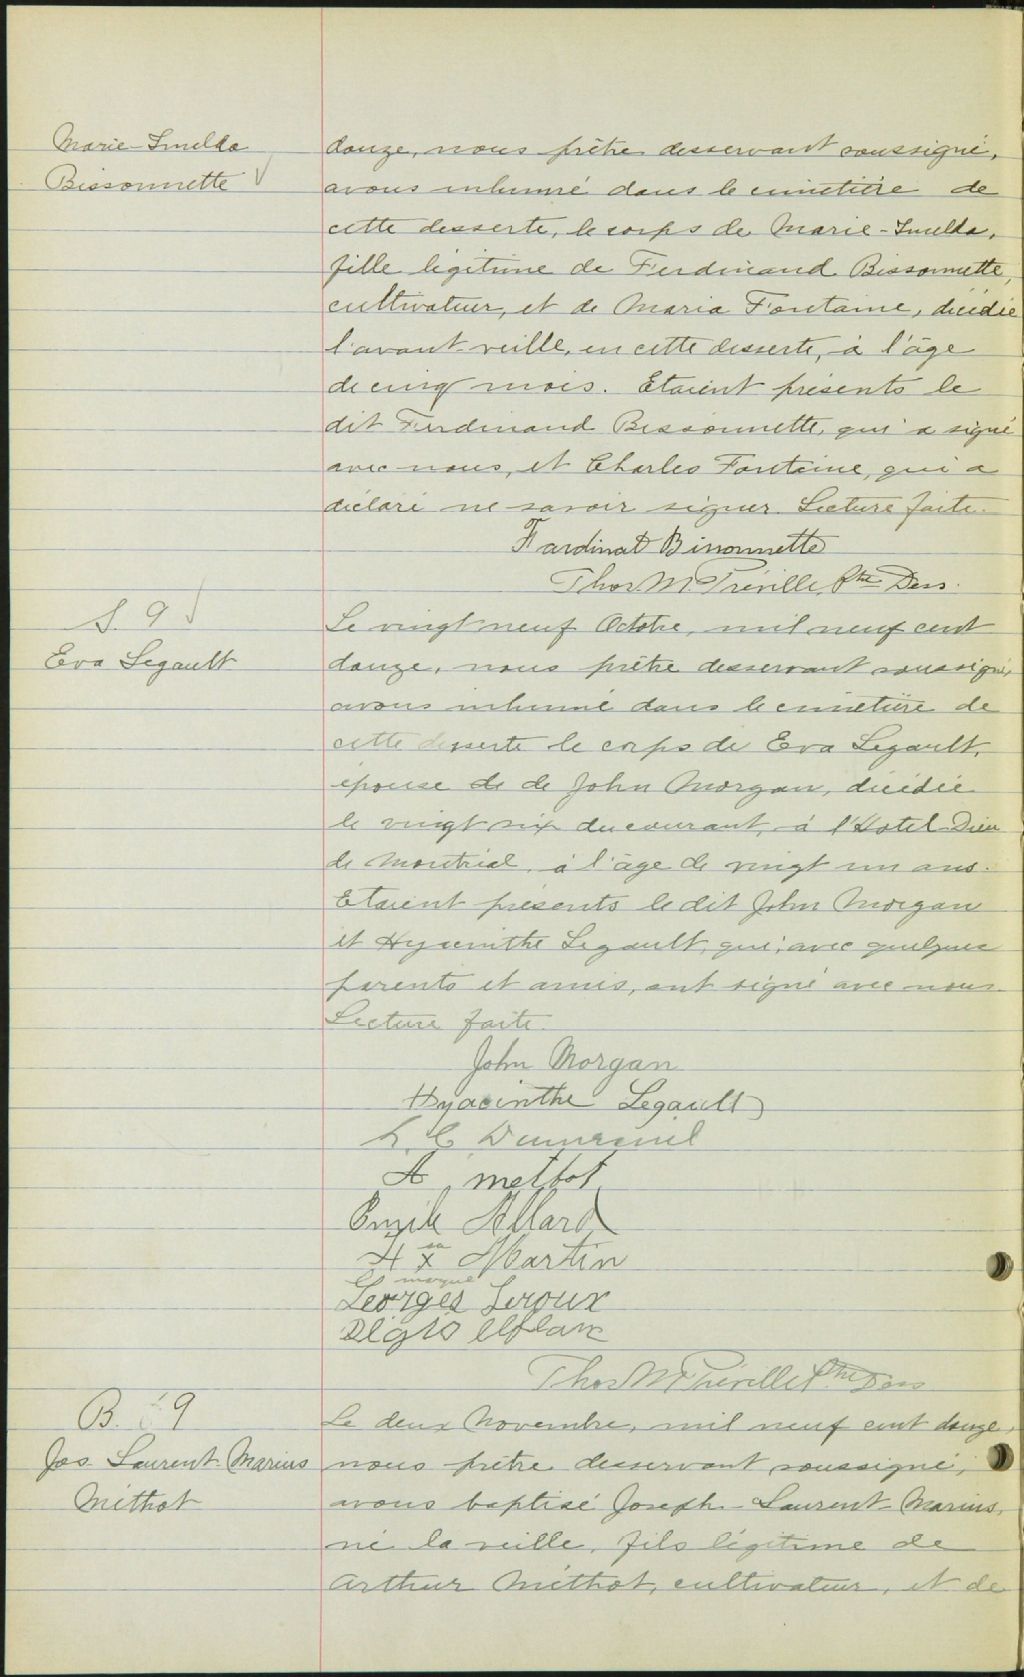 Marie-Imelda
Bissonnette
douze, nous prêtre desservant soussigné,
avons inhumé dans le cimetière de
cette desserte, le corps de Marie-Imelda,
fille légitime de Ferdinand Bissonnette,
cultivateur, et de Maria Fontaine, décédée
l'avant-veille, en cette desserte, à l'âge
de cinq mois. Etaient présents le
dit Ferdinand Bissonnette, qui a signé
avec nous, et Charles Fontaine, qui a
déclaré ne savoir signer. Lecture faite.
Fardinat Bissonnette
Thos. M. Préville, Ptre Dess.
S. 9
Eva Legault
Le vingt neuf Octobre, mil neuf cent
douze, nous prêtre desservant soussigné,
avons inhumé dans le cimetière de
cette desserte le corps de Eva Legault,
épouse de de John Morgan, décédée
le vingt six du courant, à l'Hotel-Dieu
de Montréal, à l'âge de vingt un ans.
Etaient présents le dit John Morgan
et Hyacinthe Legault, qui, avec quelques
parents et amis, ont signé avec nous.
Lecture faite.
John Morgan
Hyacinthe Legault
L. C. Dumesnil
A. mettot
Emile Allard
H x Martin
sa
marque
Georges Leroux
Thos M Préville Ptre Dess
B. 69
Jos. Laurent-Marius
Méthot
Le deux Novembre, mil neuf cent douze,
nous prêtre desservant soussigné,
avons baptisé Joseph-Laurent-Marius,
né la veille, fils légitime de
Arthur Méthot, cultivateur, et de